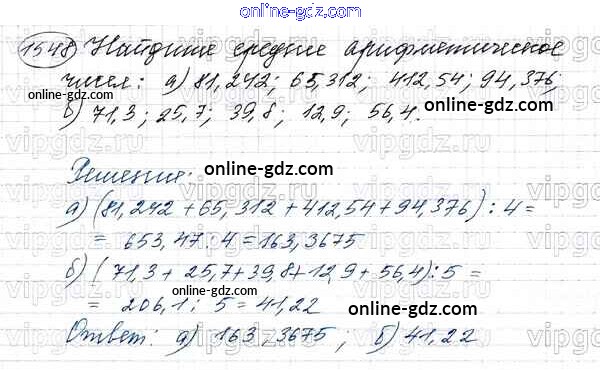 online-gdz.com
1548 Найдите среднее арифметическое
чисел: а) 81,242; 65,312; 412,54; 94,376;
online-gdz.com
б) 71,3; 25,7; 39,8; 12,9; 56,4.
online-gdz.com
vipgdz.ru
Решение:
online-gdz.com
а) (81,242 + 65,312 + 412,54 + 94,376) : 4 =
= 653,47 : 4 = 163,3675
online-gdz.com
б) (71,3 + 25,7 + 39,8 + 12,9 + 56,4) : 5 =
= 206,1 : 5 = 41,22
online-gdz.com
Ответ: а) 163,3675; б) 41,22
online-gdz.com